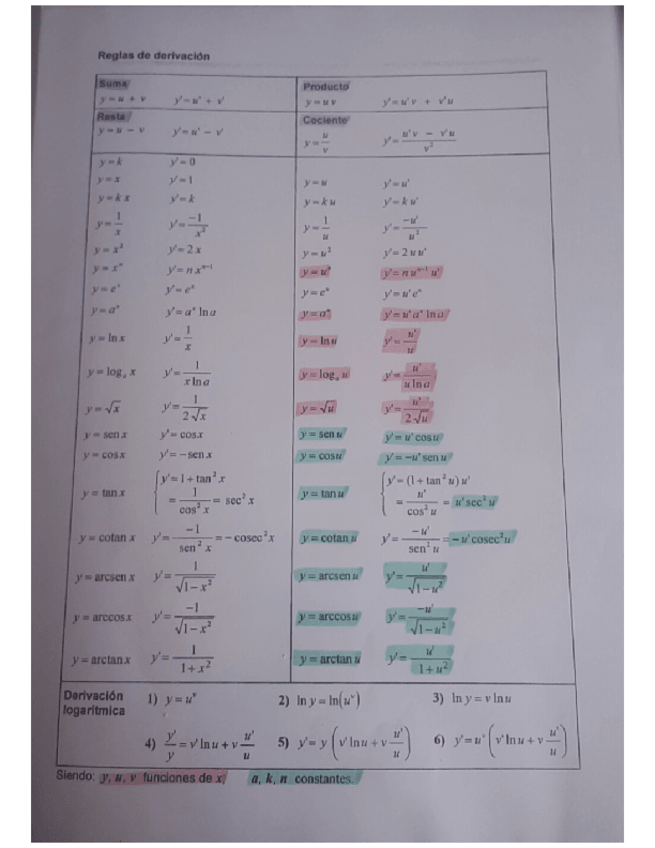 Reglas de derivación
Suma Producto
y = u + v y' = u' + v' y = u v y' = u' v + v' u
Resta Cociente
y = u − v y' = u' − v' y = u/v y' = (u' v − v' u)/v²
y = k y' = 0
y = x y' = 1 y = u y' = u'
y = k x y' = k y = k u y' = k u'
y = 1/x y' = −1/x² y = 1/u y' = −u'/u²
y = x² y' = 2 x y = u² y' = 2 u u'
y = xⁿ y' = n xⁿ⁻¹ y = uⁿ y' = n uⁿ⁻¹ u'
y = eˣ y' = eˣ y = eᵘ y' = u' eᵘ
y = aˣ y' = aˣ ln a y = aᵘ y' = u' aᵘ ln a
y = ln x y' = 1/x y = ln u y' = u'/u
y = logₐ x y' = 1/(x ln a) y = logₐ u y' = u'/(u ln a)
y = √x y' = 1/(2√x) y = √u y' = u'/(2√u)
y = sen x y' = cos x y = sen u y' = u' cos u
y = cos x y' = − sen x y = cos u y' = −u' sen u
y = tan x { y' = 1 + tan² x = 1/cos² x = sec² x y = tan u { y' = (1 + tan² u) u' = u'/cos² u = u' sec² u
y = cotan x y' = −1/sen² x = − cosec² x y = cotan u y' = −u'/sen² u = − u' cosec² u
y = arcsen x y' = 1/√(1 − x²) y = arcsen u y' = u'/√(1 − u²)
y = arccos x y' = −1/√(1 − x²) y = arccos u y' = −u'/√(1 − u²)
y = arctan x y' = 1/(1 + x²) y = arctan u y' = u'/(1 + u²)
Derivación logarítmica 1) y = uᵛ 2) ln y = ln(uᵛ) 3) ln y = v ln u
4) y'/y = v' ln u + v u'/u 5) y' = y (v' ln u + v u'/u) 6) y' = uᵛ (v' ln u + v u'/u)
Siendo: y, u, v funciones de x, a, k, n constantes.